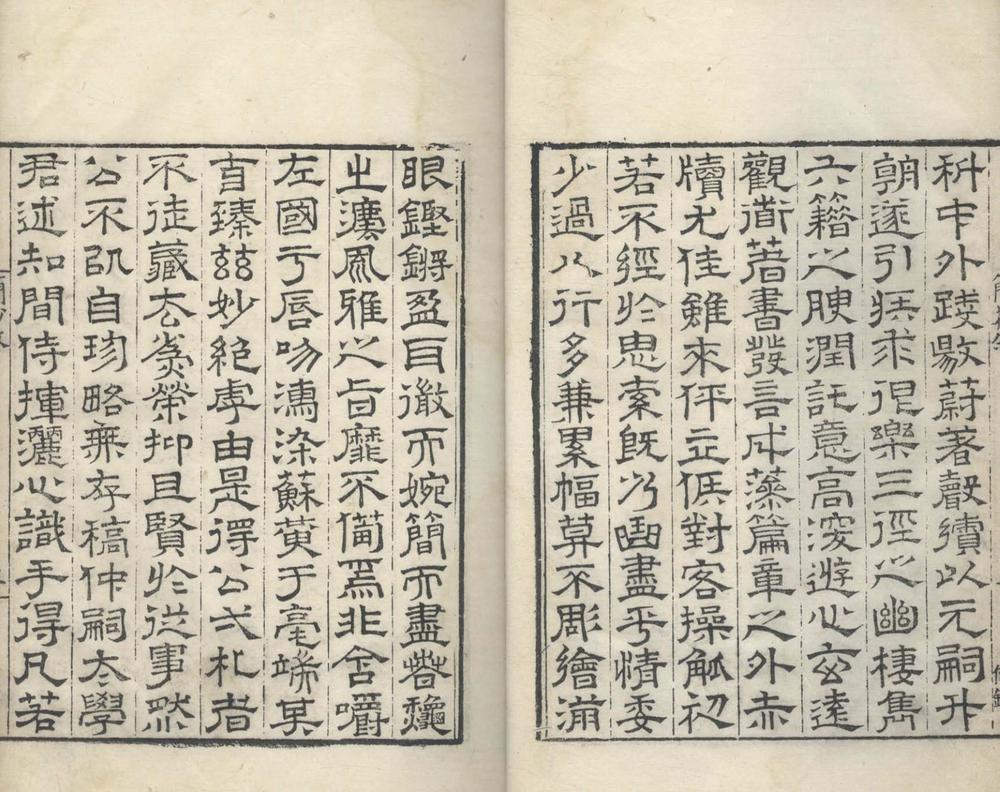 科中外踐敭蔚著聲績以元嗣升
朝遂引疾求退樂三徑之幽棲雋
六籍之腴潤託意高深遊心玄遠
觀道著書發言成藻篇章之外赤
牘尤佳雖來伻立俟對客操觚初
若不經於思索既乃曲盡乎情委
少過八行多兼累幅莫不彫繪滿
眼鏗鏘盈耳而婉簡而盡
之風雅之旨靡不備焉非含嚼
左國于唇吻濡染蘇黃于毫端其
言臻茲妙絕虖由是得公弌札者
不徒藏去為榮抑且賢於從事然
公不肎自珍略無存稿仲嗣太學
君述知間侍揮灑心識手得凡若